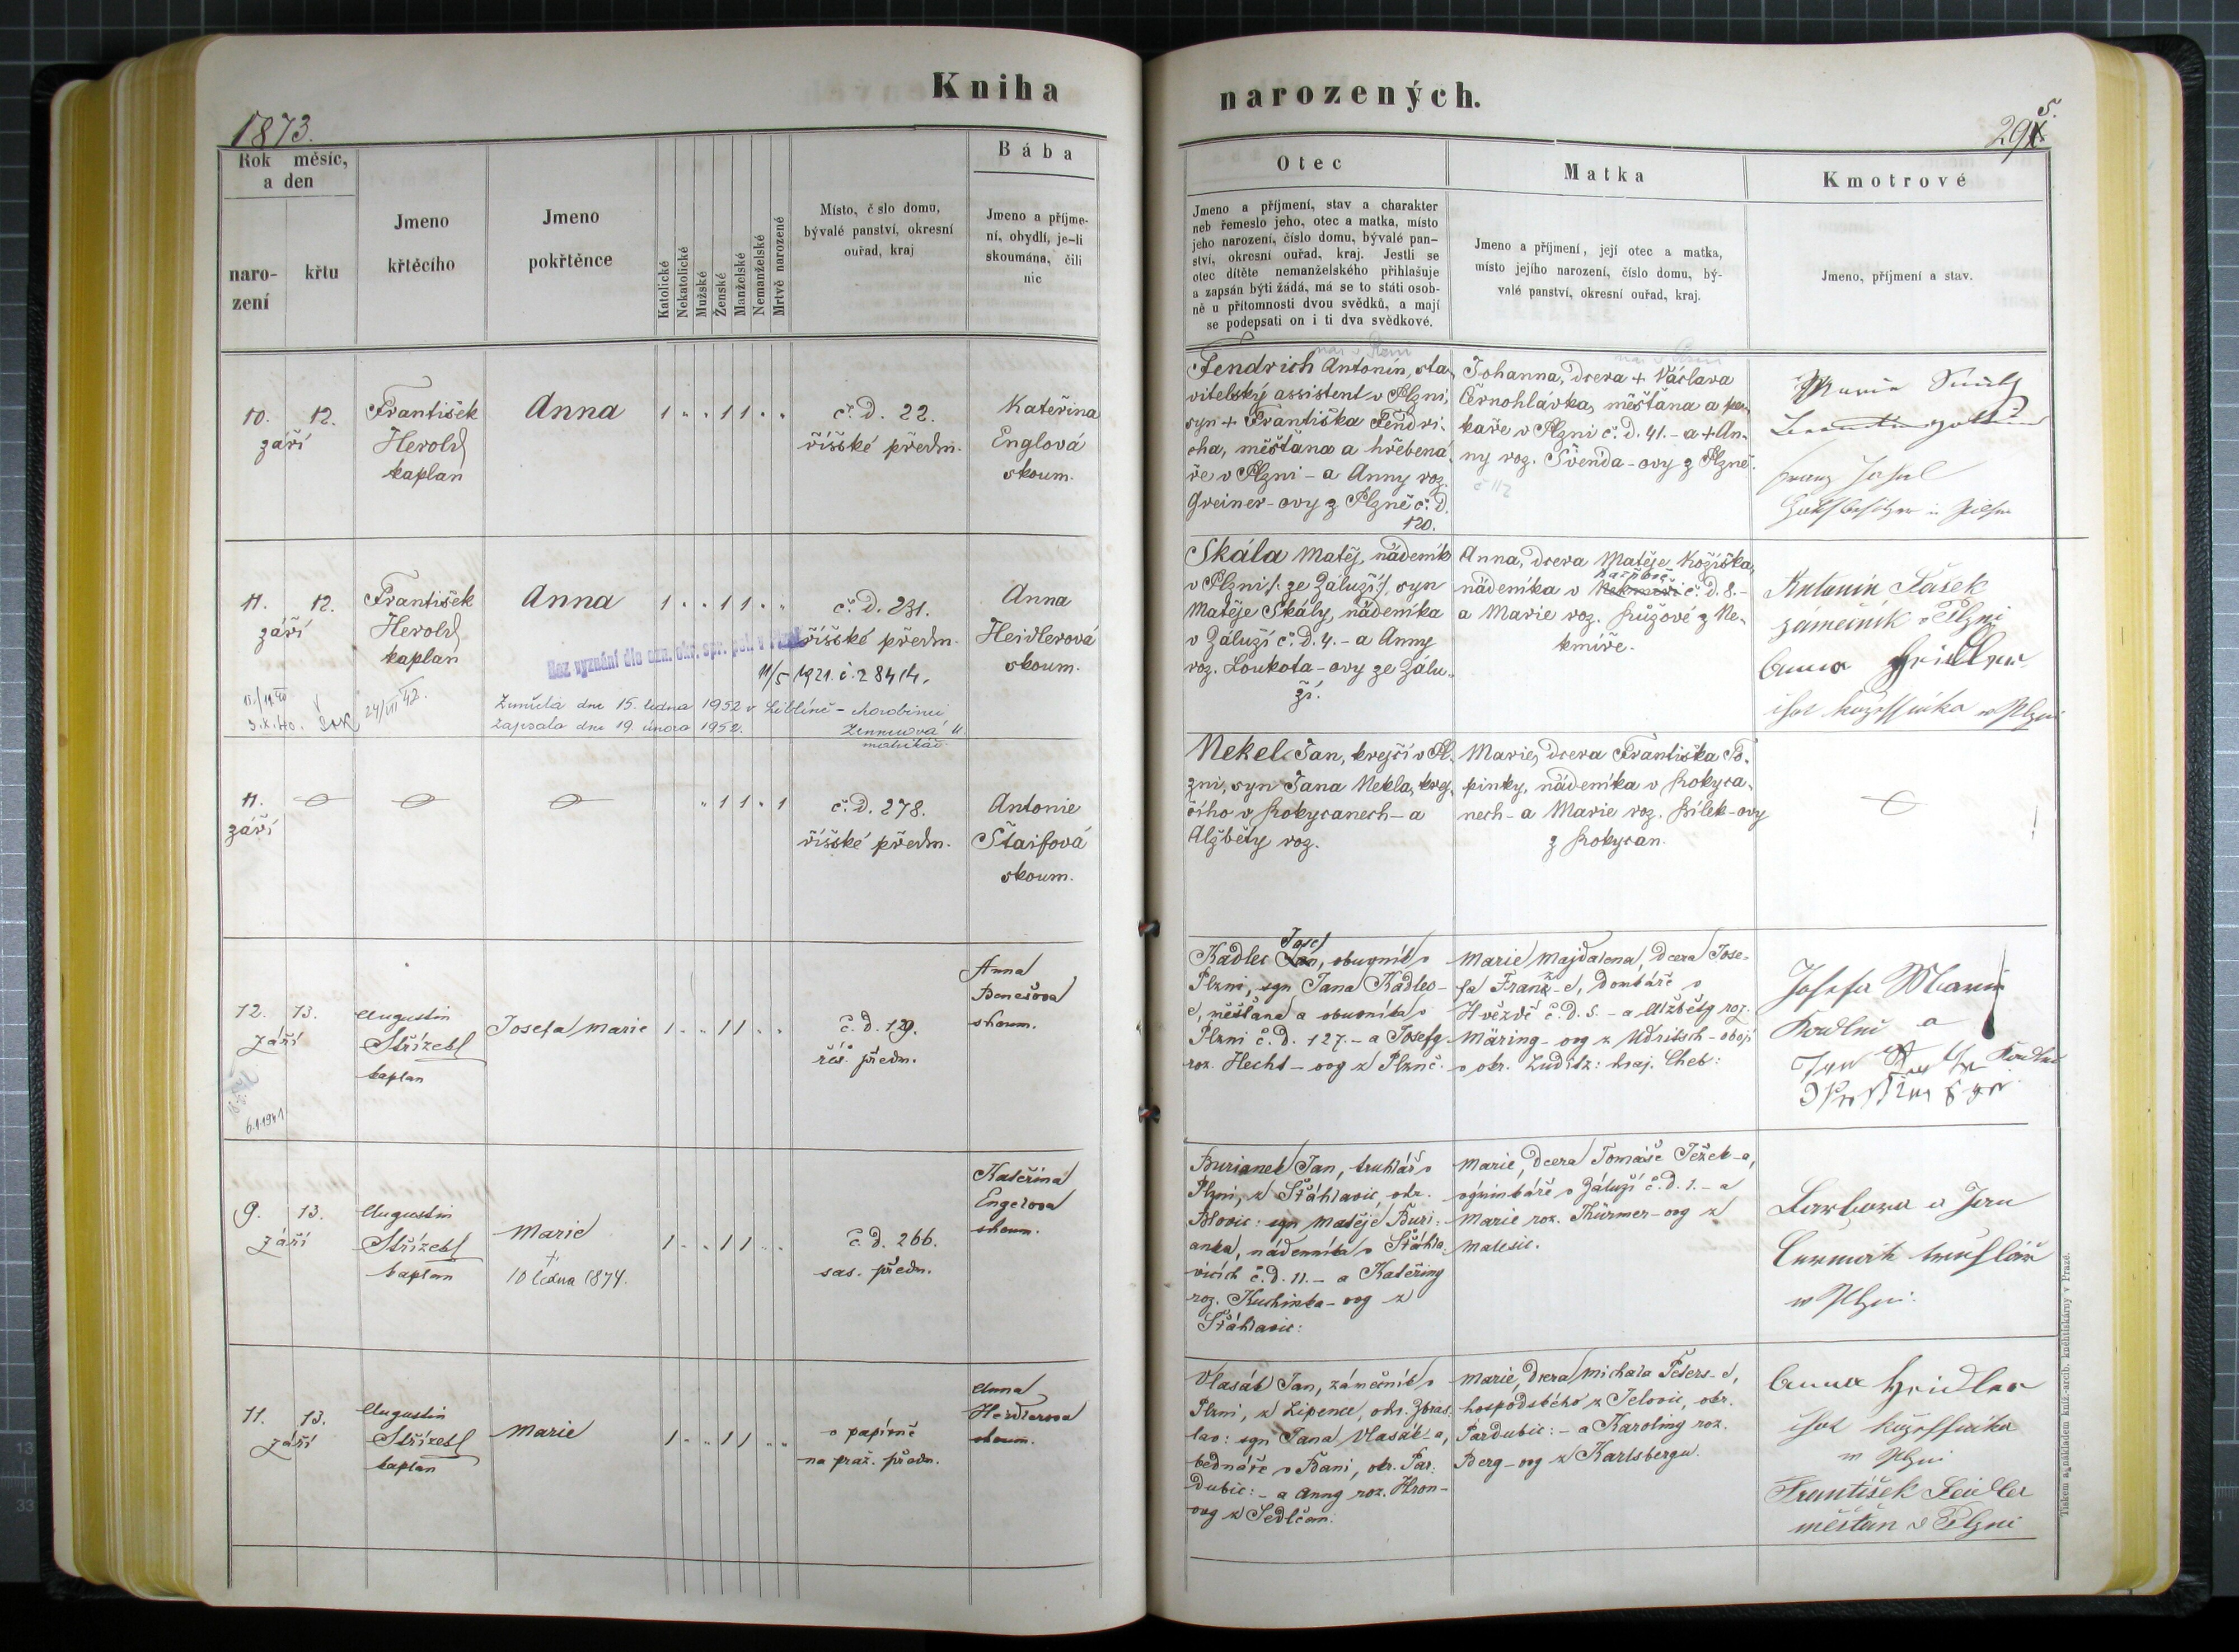 Kniha
narozených.
1873.
295.
Rok měsíc,
a den
naro-
zení
křtu
Jmeno
křtěcího
Jmeno
pokřtěnce
Katolické
Nekatolické
Mužské
Ženské
Manželské
Nemanželské
Mrtvě narozené
Místo, č slo domu,
bývalé panství, okresní
ouřad, kraj
Bába
Jmeno a příjme-
ní, obydlí, je-li
skoumána, čili
nic
Otec
Jmeno a příjmení, stav a charakter
neb řemeslo jeho, otec a matka, místo
jeho narození, číslo domu, bývalé pan-
ství, okresní ouřad, kraj. Jestli se
otec dítěte nemanželského přihlašuje
a zapsán býti žádá, má se to státi osob-
ně u přítomnosti dvou svědků, a mají
se podepsati on i ti dva svědkové.
Matka
Jmeno a příjmení, její otec a matka,
místo jejího narození, číslo domu, bý-
valé panství, okresní ouřad, kraj.
Kmotrové
Jmeno, příjmení a stav.
10. 12.
září
František
Herold
kaplan
Anna
1 " " 1 1 " "
č. D. 22.
říšské předm.
Kateřina
Englová
skoum.
Fendrich Antonín, sta-
vitelský assistent v Plzni,
syn + Františka Fendri-
cha, měšťana a hřebená-
ře v Plzni - a Anny roz.
Greiner-ovy z Plzně č. D.
120.
Johanna, dcera + Václava
Černohlávka, měšťana a pe-
kaře v Plzni č. D. 41. - a + An-
ny roz. Švenda-ovy z Plzně.
č 112
Franz
in Pilsen
11. 12.
září
František
Herold
kaplan
24/VIII 42.
Anna
1 " " 1 1 " "
č. D. 231.
říšské předm.
Bez vyznání dle ozn. okr. spr. pol. v Plzni
11/5 1921. č. 28414.
Zemřela dne 15. ledna 1952 v Liblíně -
Zapsala dne 19. února 1952.
matrikář
Anna
Heidlerová
skoum.
Skála Matěj, nádeník
v Plzni /: ze Záluží :/, syn
Matěje Skály, nádeníka
v Záluží č. D. 4. - a Anny
roz. Loukota-ovy ze Zálu-
ží.
Anna, dcera Matěje Kožíška,
nádeníka v Nekmíři č. D. 8. -
a Marie roz. Růžové z Ne-
kmíře.
Antonín Fášek
zámečník v Plzni
Anna Heidler
v Plzni
11.
září
" 1 1 " 1
č. D. 278.
říšské předm.
Antonie
Štaifová
skoum.
Nekel Jan, krejčí v Pl-
zni, syn Jana Nekla, krej-
čího v Rokycanech - a
Alžběty roz.
Marie, dcera Františka To-
pinky, nádeníka v Rokyca-
nech - a Marie roz. Bílek-ovy
z Rokycan.
12. 13.
září
6.1.1941
Augustin
Střízek
kaplan
Josefa Marie
1 " " 1 1 " "
č. d. 129.
říš. předm.
Anna
Benešova
skoum.
Josef
Kadlec Jan, obuvník v
Plzni, syn Jana Kadlec-
e, měšťana a obuvníka v
Plzni č. D. 127. - a Josefy
roz. Hecht-ovy z Plzně.
Marie Majdalena, dcera Jose-
fa Franz-e, domkáře v
Hvězdě č. D. 5. - a Alžběty roz.
Märing-ovy z Udritsch - obojí
v okr. Luditz: kraj. Cheb:
Josefa Marie
Kadlec a
9. 13.
září
Augustin
Střízek
kaplan
Marie
†
10 ledna 1874.
1 " " 1 1 " "
č. D. 266.
sas. předm.
Kateřina
Engelova
skoum.
Burianek Jan, truhlář v
Plzni, z Šťáhlavic, okr.
Blovic: syn Matěje Buri-
anka, nádenníka v Šťáhla-
vicích č. D. 11. - a Kateřiny
roz. Kuchinka-ovy z
Šťáhlavic:
Marie, dcera Tomáše Ježek-a,
výminkáře v Záluží č. D. 1. - a
Marie roz. Thürmer-ovy z
Malesic.
Barbora a Jan
Čermák truhlář
v Plzni.
11. 13.
září
Augustin
Střízek
kaplan
Marie
1 " " 1 1 " "
v papírně
na praž. předm.
Anna
Heidlerova
skoum.
Vlasák Jan, zámečník v
Plzni, z Lipence, okr. Zbras-
lav: syn Jana Vlasák-a,
bednáře v Bani, okr. Par-
dubic: - a Anny roz. Hron-
ovy z Sedlčan.
Marie, dcera Michala Peters-e,
hospodského z Jelovic, okr.
Pardubic: - a Karoliny roz.
Berg-ovy z Karlsbergu.
Anna Heidler
v Plzni
František Seidler
měšťan v Plzni
Tiskem a nákladem kníž.-arcib. knihtiskárny v Praze.